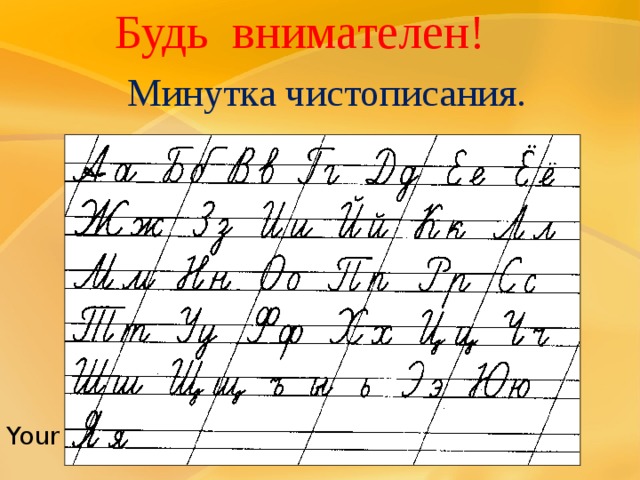 Будь внимателен!
Минутка чистописания.
Аа Бб Вв Гг Дд Ее Ёё
Жж Зз Ии Йй Кк Лл
Мм Нн Оо Пп Рр Сс
Тт Уу Фф Хх Цц Чч
Шш Щщ ъ ы ь Ээ Юю
Your
Яя